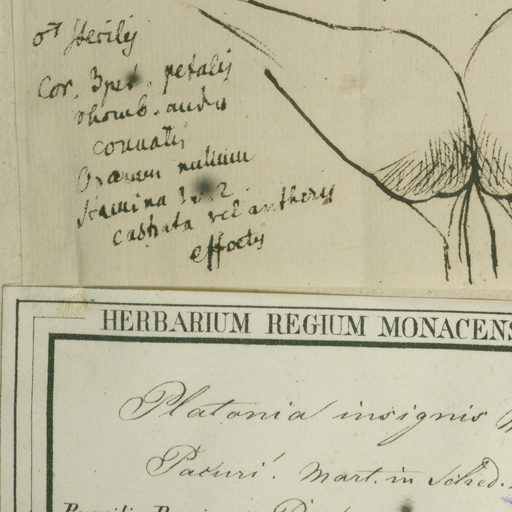 ♂ sterilis
Cor. 3pet. petalis
rhomb.
connatis
Ovarium nullum
Stamina 1 v. 2
castrata vel antheris
effoetis
HERBARIUM REGIUM MONACENS
Platonia insignis M
Pacuri. Mart. in Sched.